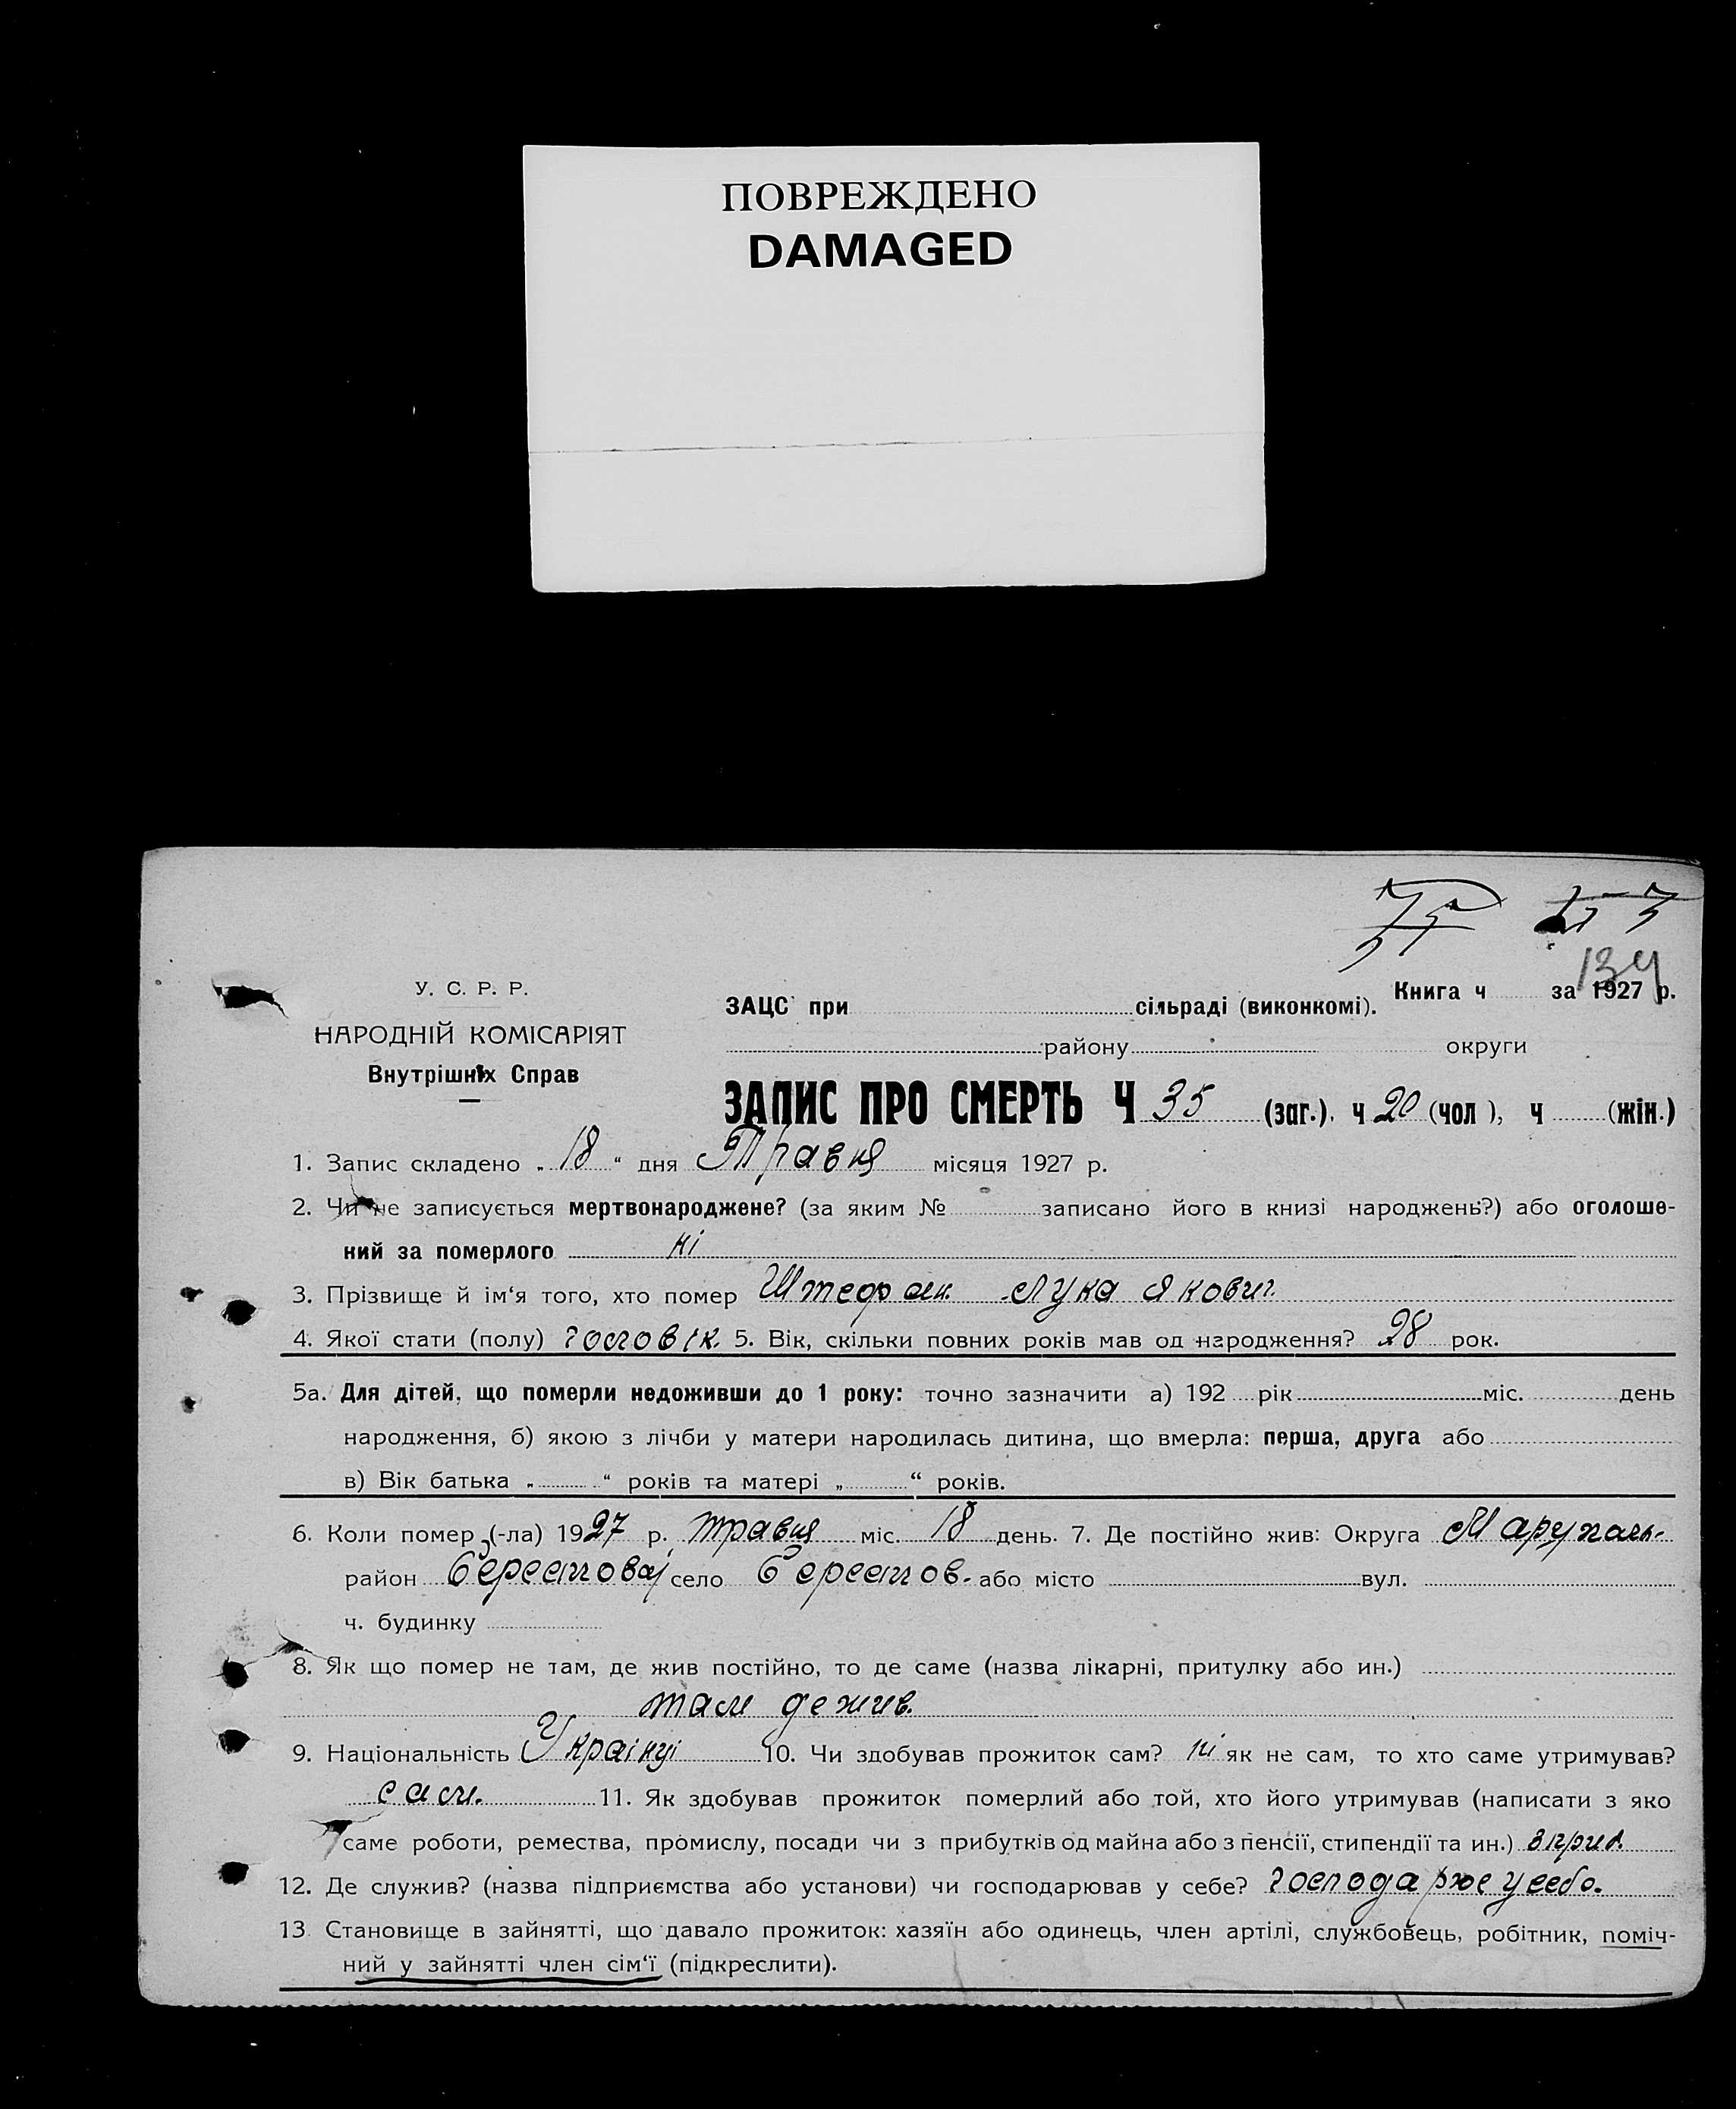 ПОВРЕЖДЕНО
DAMAGED
134
У. С. Р. Р.
НАРОДНІЙ КОМІСАРІЯТ
Внутрішніх Справ
ЗАЦС при сільраді (виконкомі). Книга ч за 1927 р.
району округи
ЗАПИС ПРО СМЕРТЬ Ч 35 (заг.), ч 20 (чол), ч (жін.)
1. Запис складено „ 18 “ дня Травня місяця 1927 р.
2. Чи не записується мертвонароджене? (за яким № записано його в книзі народжень?) або оголоше-
ний за померлого ні
3. Прізвище й ім‘я того, хто помер Штефан. Лука Якович
4. Якої стати (полу) чоловік. 5. Вік, скільки повних років мав од народження? 28 рок.
5а. Для дітей, що померли недоживши до 1 року: точно зазначити а) 192 рік міс. день
народження, б) якою з лічби у матери народилась дитина, що вмерла: перша, друга або
в) Вік батька „ “ років та матері „ “ років.
6. Коли помер (-ла) 1927 р. травня міс. 18 день. 7. Де постійно жив: Округа Маруполь-
район Берестовой село Берестов. або місто вул.
ч. будинку
8. Як що помер не там, де жив постійно, то де саме (назва лікарні, притулку або ин.)
там де жив.
9. Національність Україн 10. Чи здобував прожиток сам? ні як не сам, то хто саме утримував?
сам. 11. Як здобував прожиток померлий або той, хто його утримував (написати з яко
саме роботи, ремества, промислу, посади чи з прибутків од майна або з пенсії, стипендії та ин.)
12. Де служив? (назва підприємства або установи) чи господарював у себе? Господарює усебе.
13 Становище в зайнятті, що давало прожиток: хазяїн або одинець, член артілі, службовець, робітник, поміч-
ний у зайнятті член сім‘ї (підкреслити).